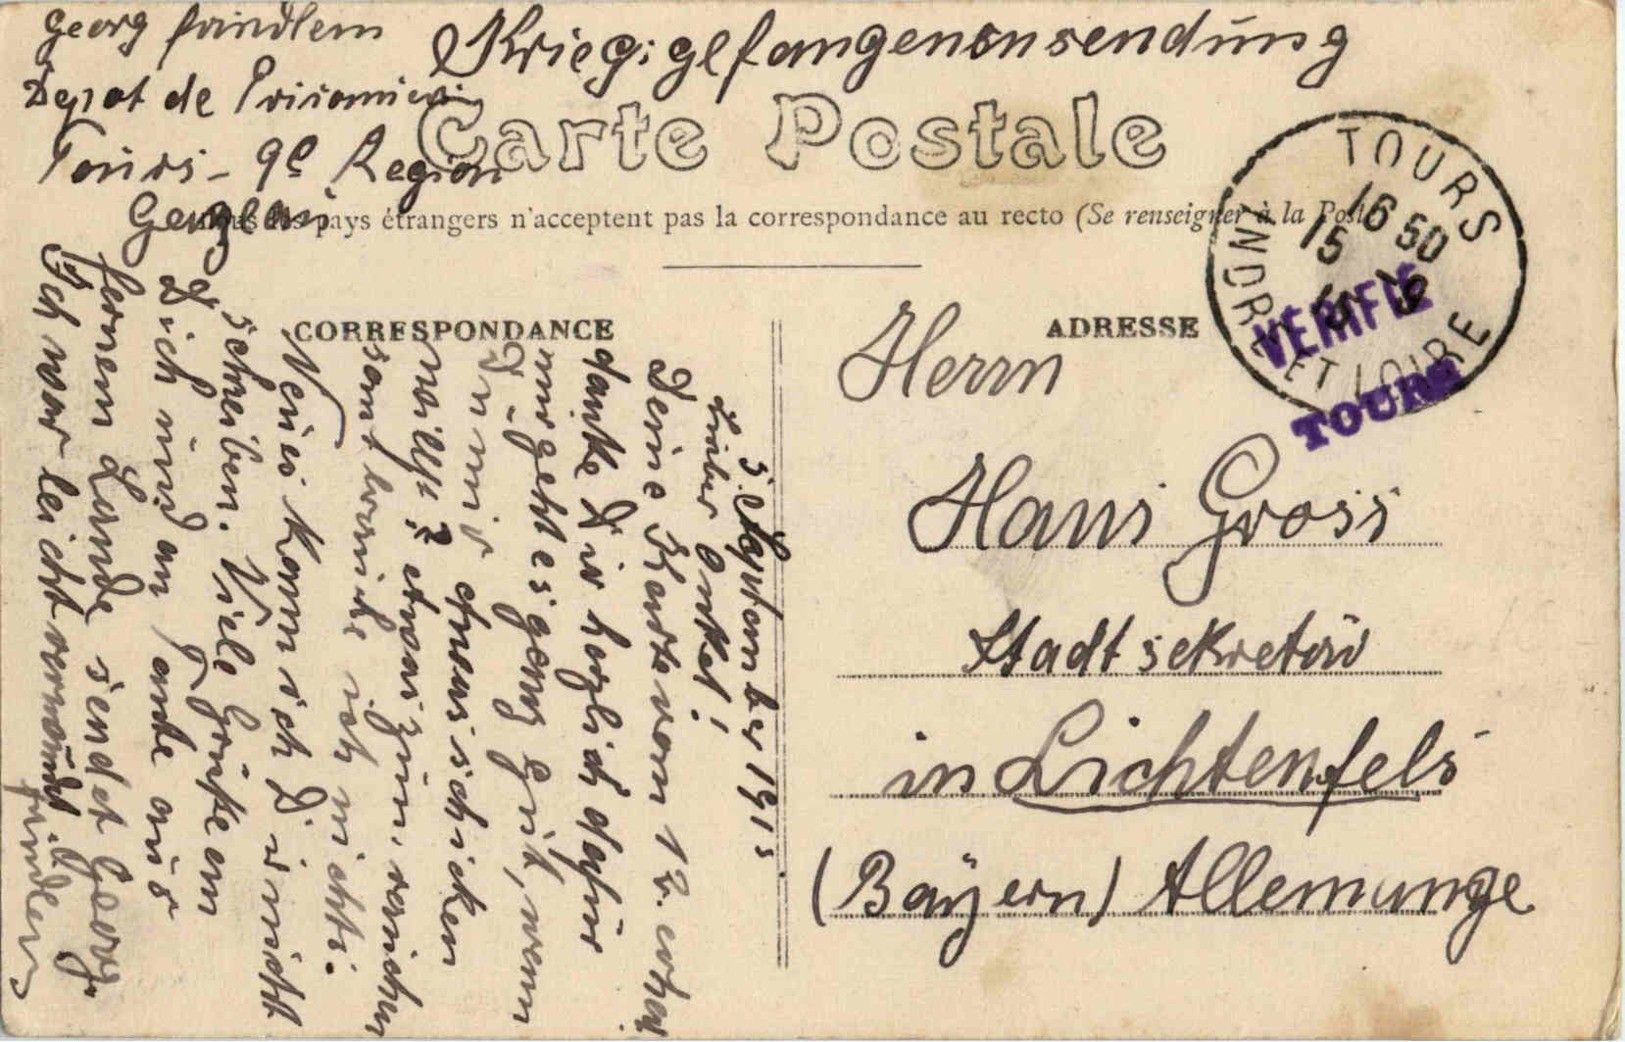 Georg
Kriegsgefangenensendung
Depot de
Carte Postale
Tours - 9e Region
pays étrangers n'acceptent pas la correspondance au recto (Se renseigner à la Poste
TOURS
16 50
15
INDRE ET LOIRE
VÉRIFIÉ
TOURS
CORRESPONDANCE
ADRESSE
Herrn
Hans Gross
Stadtsekretär
in Lichtenfels
(Bayern) Allemange
5. September 1915
Lieber Onkel!
Deine Karte vom 18. erhal.
danke Dir herzlich dafür
mir geht es ganz gut, wenn
Du mir etwas schicken
willst? etwas zum
sonst brauche ich nichts.
Neues kann ich Dir nicht
schreiben. Viele Grüße an
Dich und an Tante aus
fernem Lande sendet Georg.
Ich war leicht verwundet